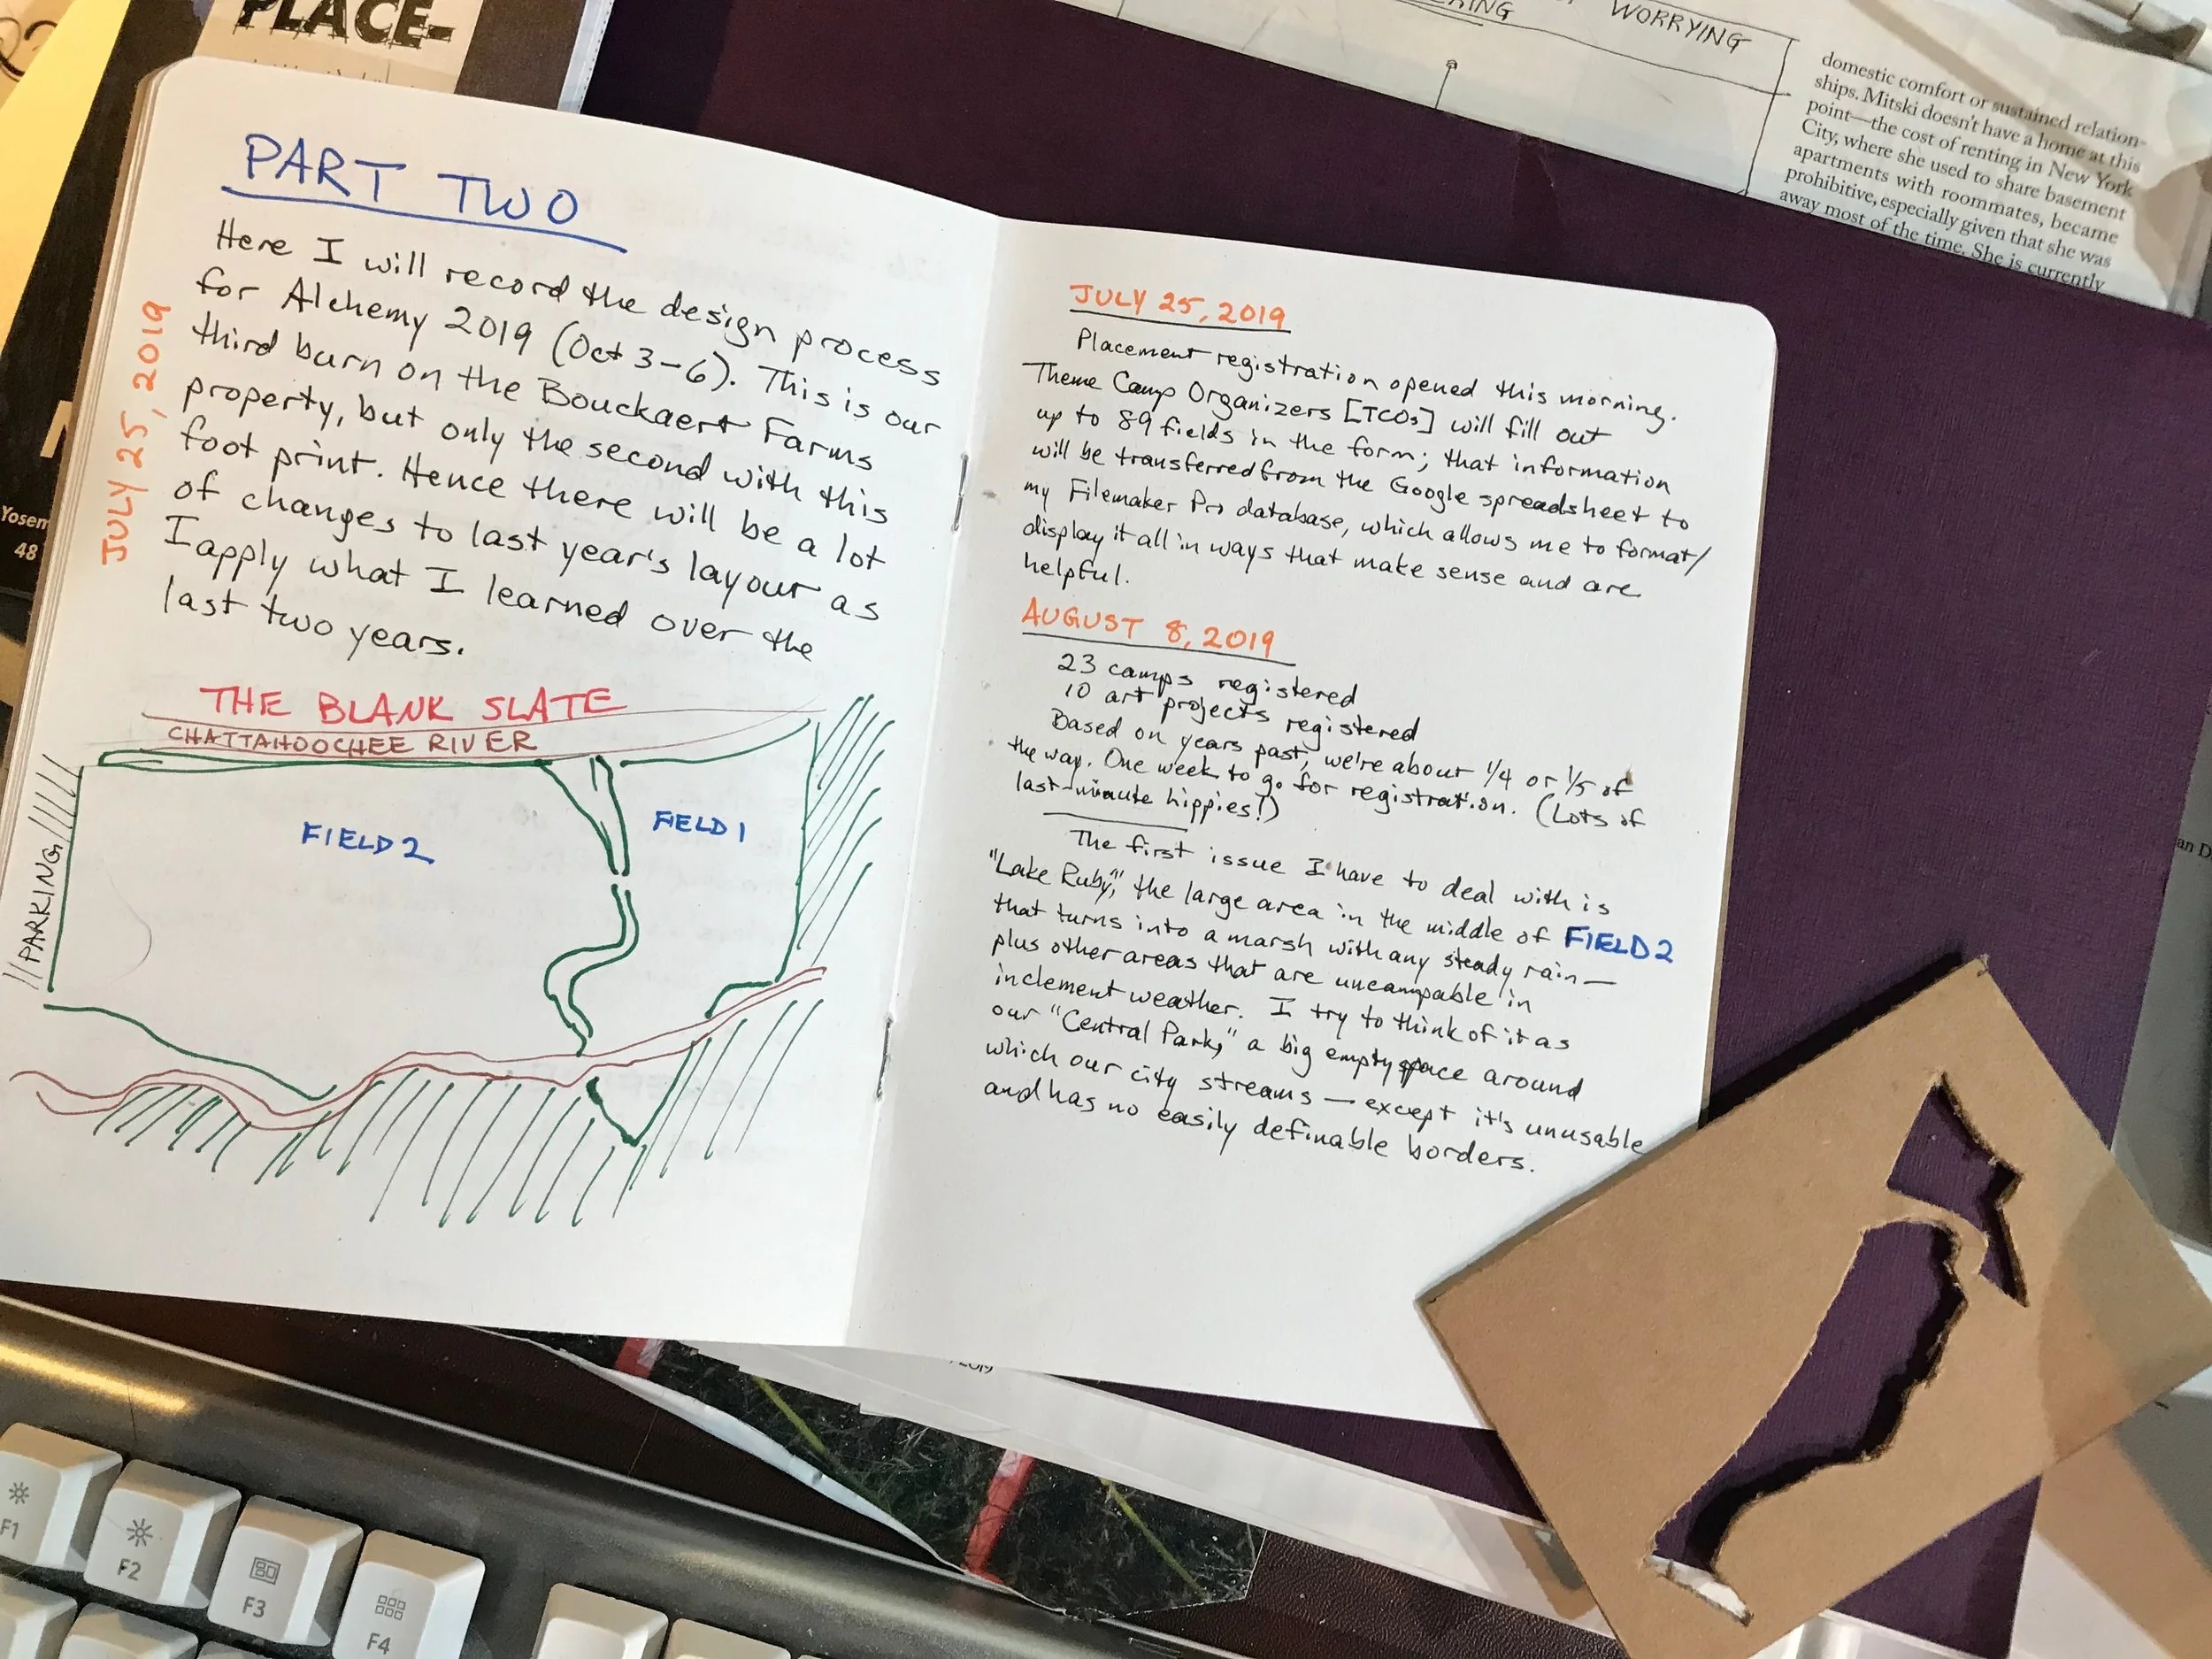 PLACE-
RING
WORRYING
domestic comfort or sustained relation-
ships. Mitski doesn't have a home at this
point—the cost of renting in New York
City, where she used to share basement
apartments with roommates, became
prohibitive, especially given that she was
away most of the time. She is currently
Yosem
48
PART TWO
JULY 25, 2019
Here I will record the design process
for Alchemy 2019 (Oct 3-6). This is our
third burn on the Bouckaert Farms
property, but only the second with this
foot print. Hence there will be a lot
of changes to last year's layour as
I apply what I learned over the
last two years.
THE BLANK SLATE
CHATTAHOOCHEE RIVER
FIELD 2
FIELD 1
PARKING
JULY 25, 2019
Placement registration opened this morning.
Theme Camp Organizers [TCOs] will fill out
up to 89 fields in the form; that information
will be transferred from the Google spreadsheet to
my Filemaker Pro database, which allows me to format/
display it all in ways that make sense and are
helpful.
AUGUST 8, 2019
23 camps registered
10 art projects registered
Based on years past, we're about 1/4 or 1/5 of
the way. One week to go for registration. (Lots of
last-minute hippies!)
The first issue I have to deal with is
"Lake Ruby," the large area in the middle of FIELD 2
that turns into a marsh with any steady rain—
plus other areas that are uncampable in
inclement weather. I try to think of it as
our "Central Park," a big empty space around
which our city streams — except it's unusable
and has no easily definable borders.
2019
an D
F1
F2
F3
F4